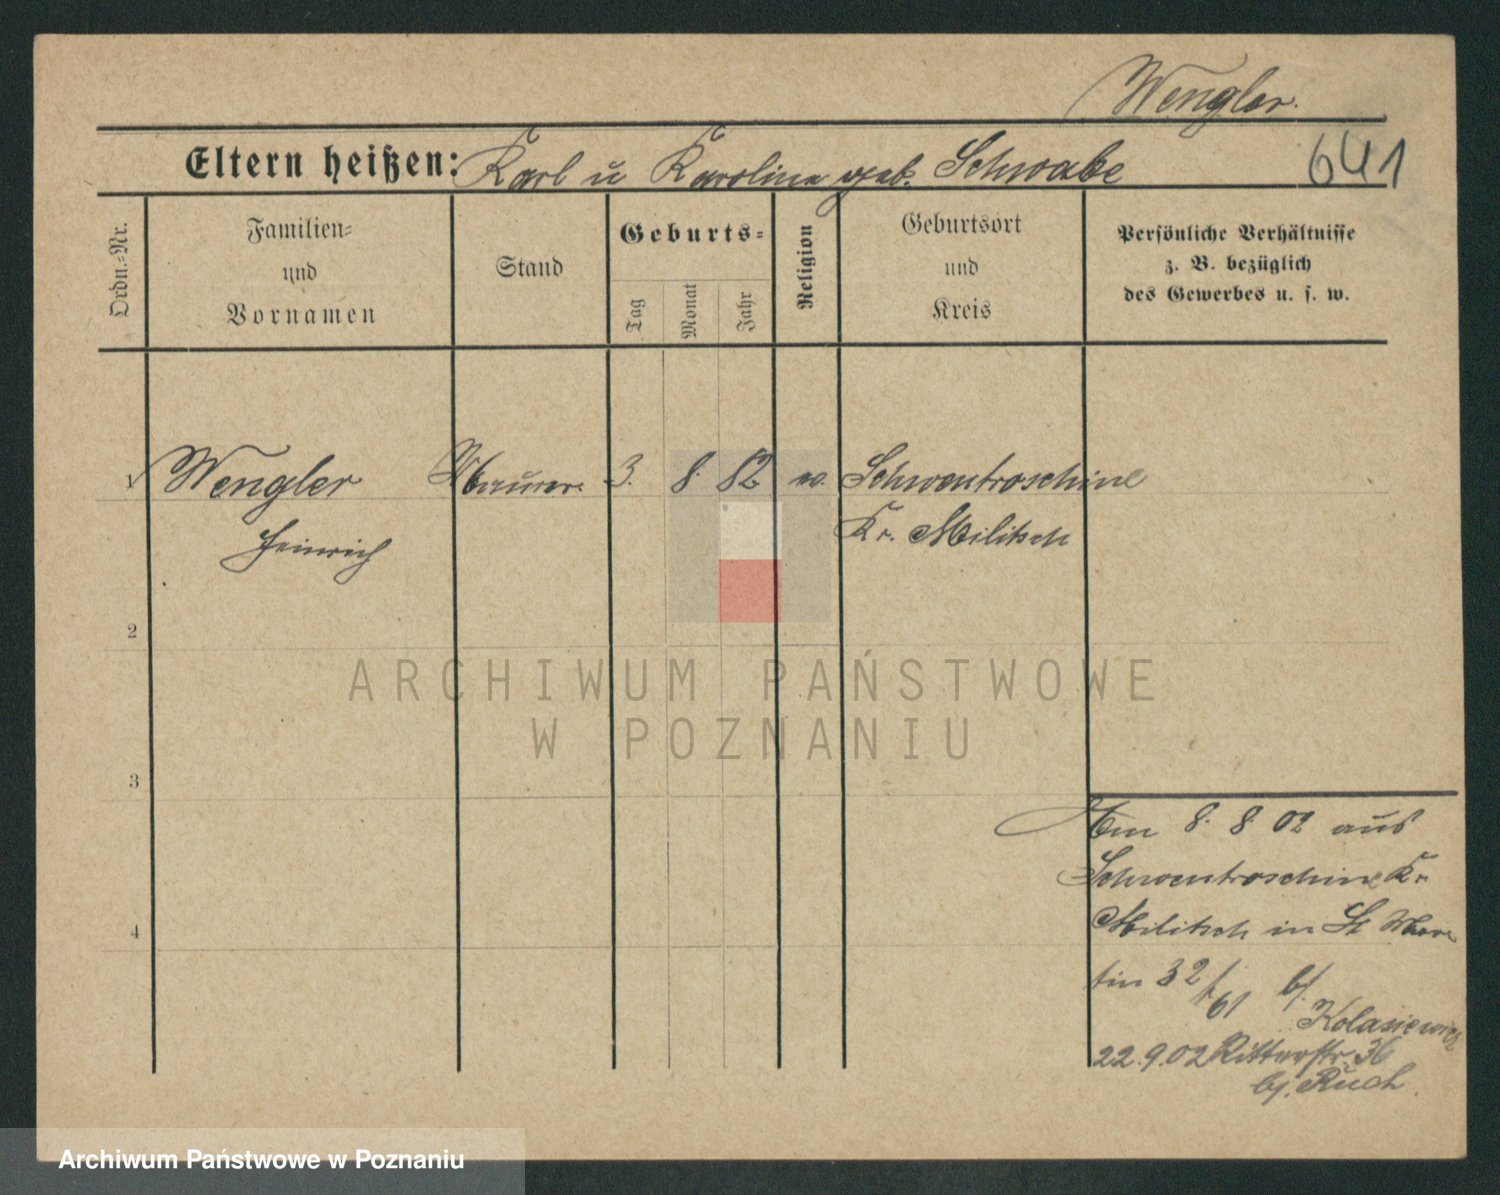 Wengler.
Eltern heißen: Karl u Karoline geb. Schwabe
641
Ordn.=Nr.
Familien=
und
Vornamen
Stand
Geburts=
Tag
Monat
Jahr
Religion
Geburtsort
und
Kreis
Persönliche Verhältnisse
z. B. bezüglich
des Gewerbes u. s. w.
1 Wengler Maurer. 3. 8. 82 ev. Schwentroschine
Heinrich Kr. Militsch
2
ARCHIWUM PAŃSTWOWE
W POZNANIU
3
Am 8. 8 02 aus
Schwentroschine Kr.
4
Militsch in St Mar
tin 32/61 b/.
Kolasiewicz
22.9.02 Ritterstr. 36
bj. Ruch.
Archiwum Państwowe w Poznaniu